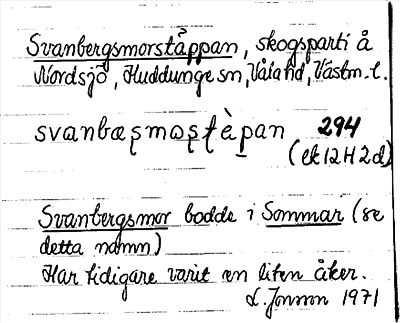 Svanbergsmorståppan, skogsparti å
Nordsjö, Huddunge sn, Våla hd, Västm. l.
svanbæʂmoʂtɛ̀pan 294
(ek 12 H 2d)
Svanbergsmor bodde i Sommar (se
detta namn)
Har tidigare varit en liten åker.
L. Jonson 1971